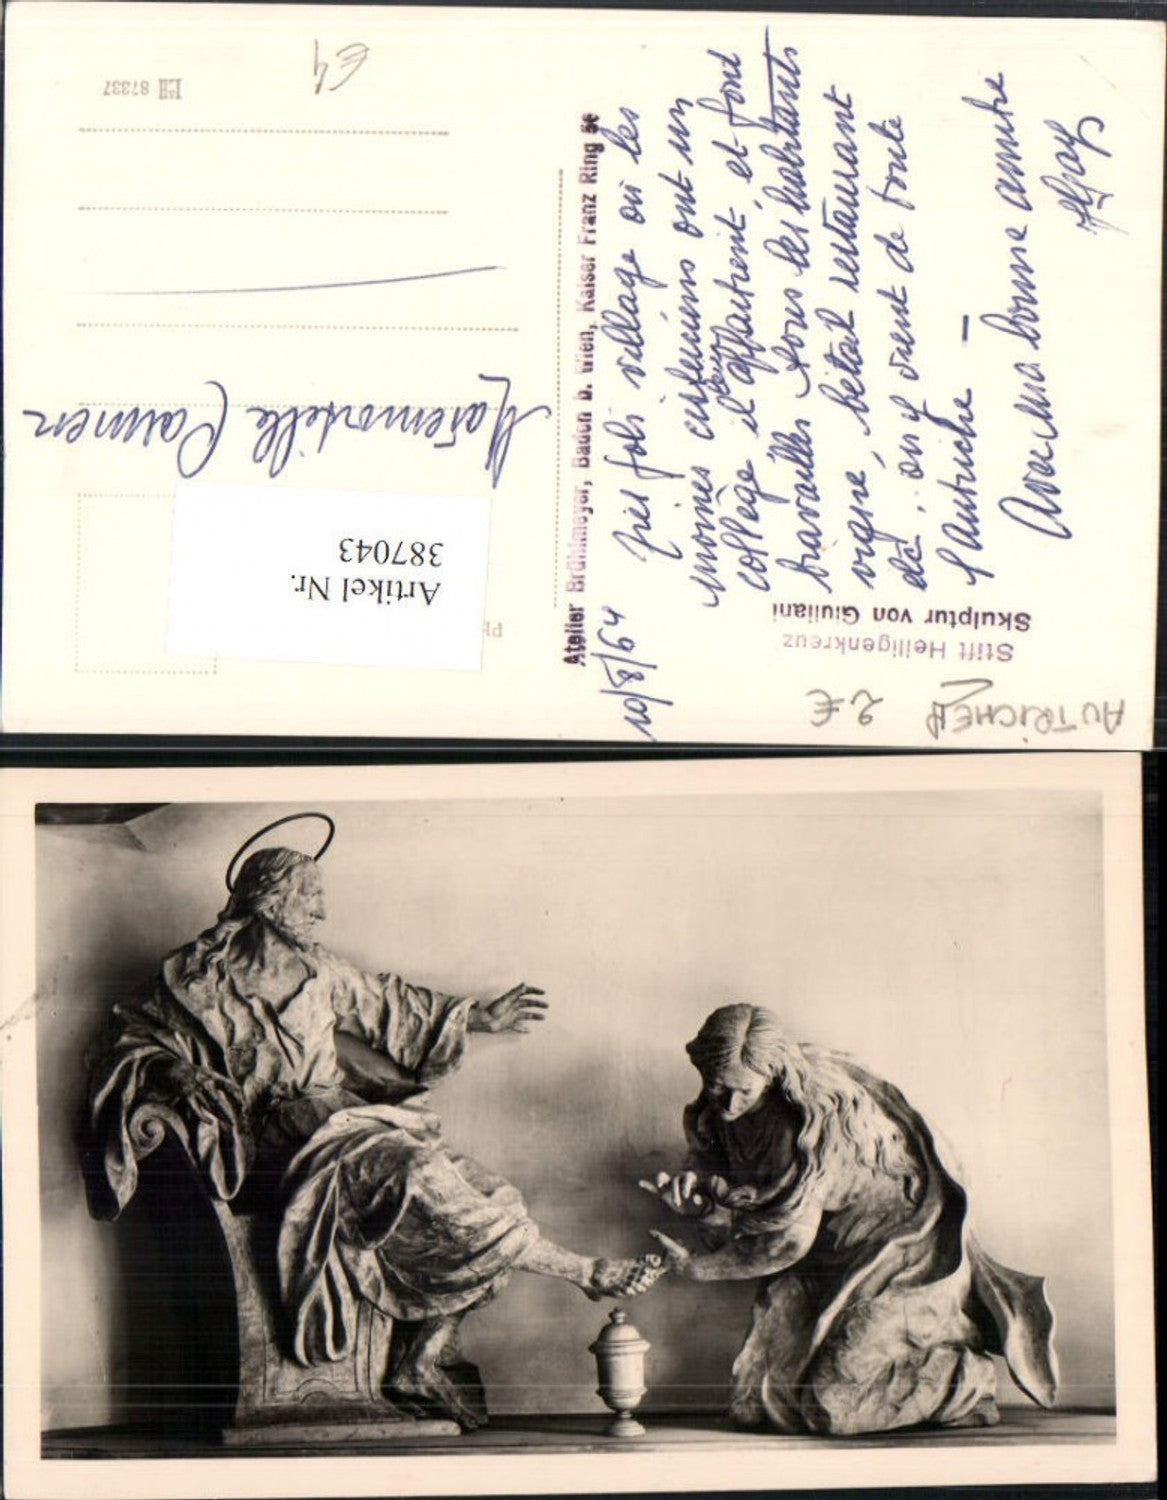 AUTRICHE
2 €
Stift Heiligenkreuz
Skulptur von Giuliani
10/8/64
très joli village où les
moines cisterciens ont un
collège il leur appartient, et font
travailler tous les habitants
vigne, bétail restaurant
etc., où y vient de toute
l'autriche —
Avec ma bonne amitié
Atelier Brühlmeyer, Baden b. Wien, Kaiser Franz Ring 5c
Artikel Nr.
387043
Mademoiselle Carmen
87337
€4